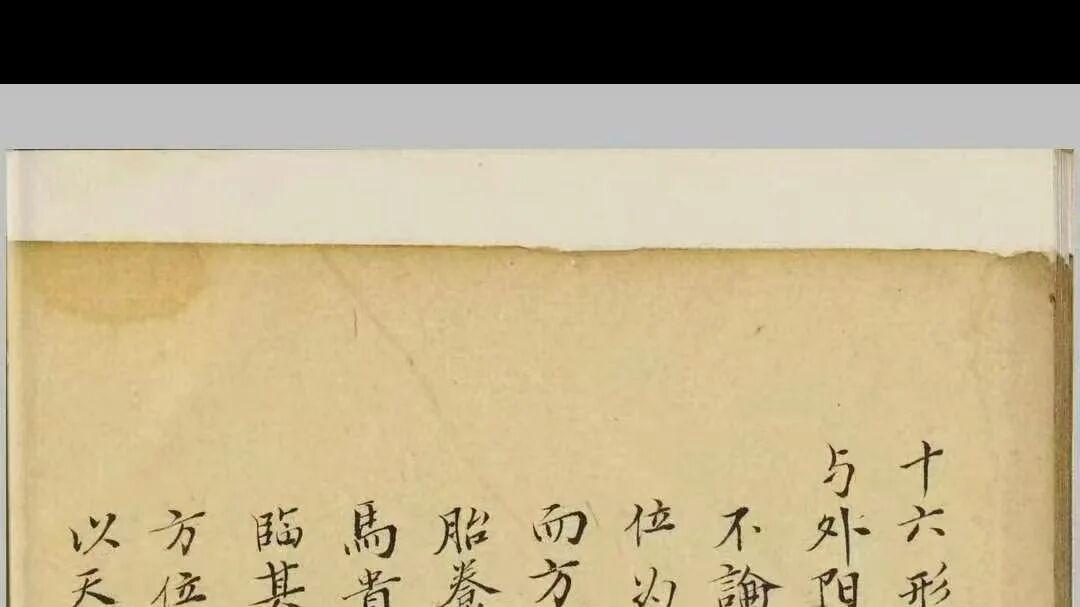 十六形
与外阳
不論
位为
而方
胎養
馬貴
臨其
方位
以天